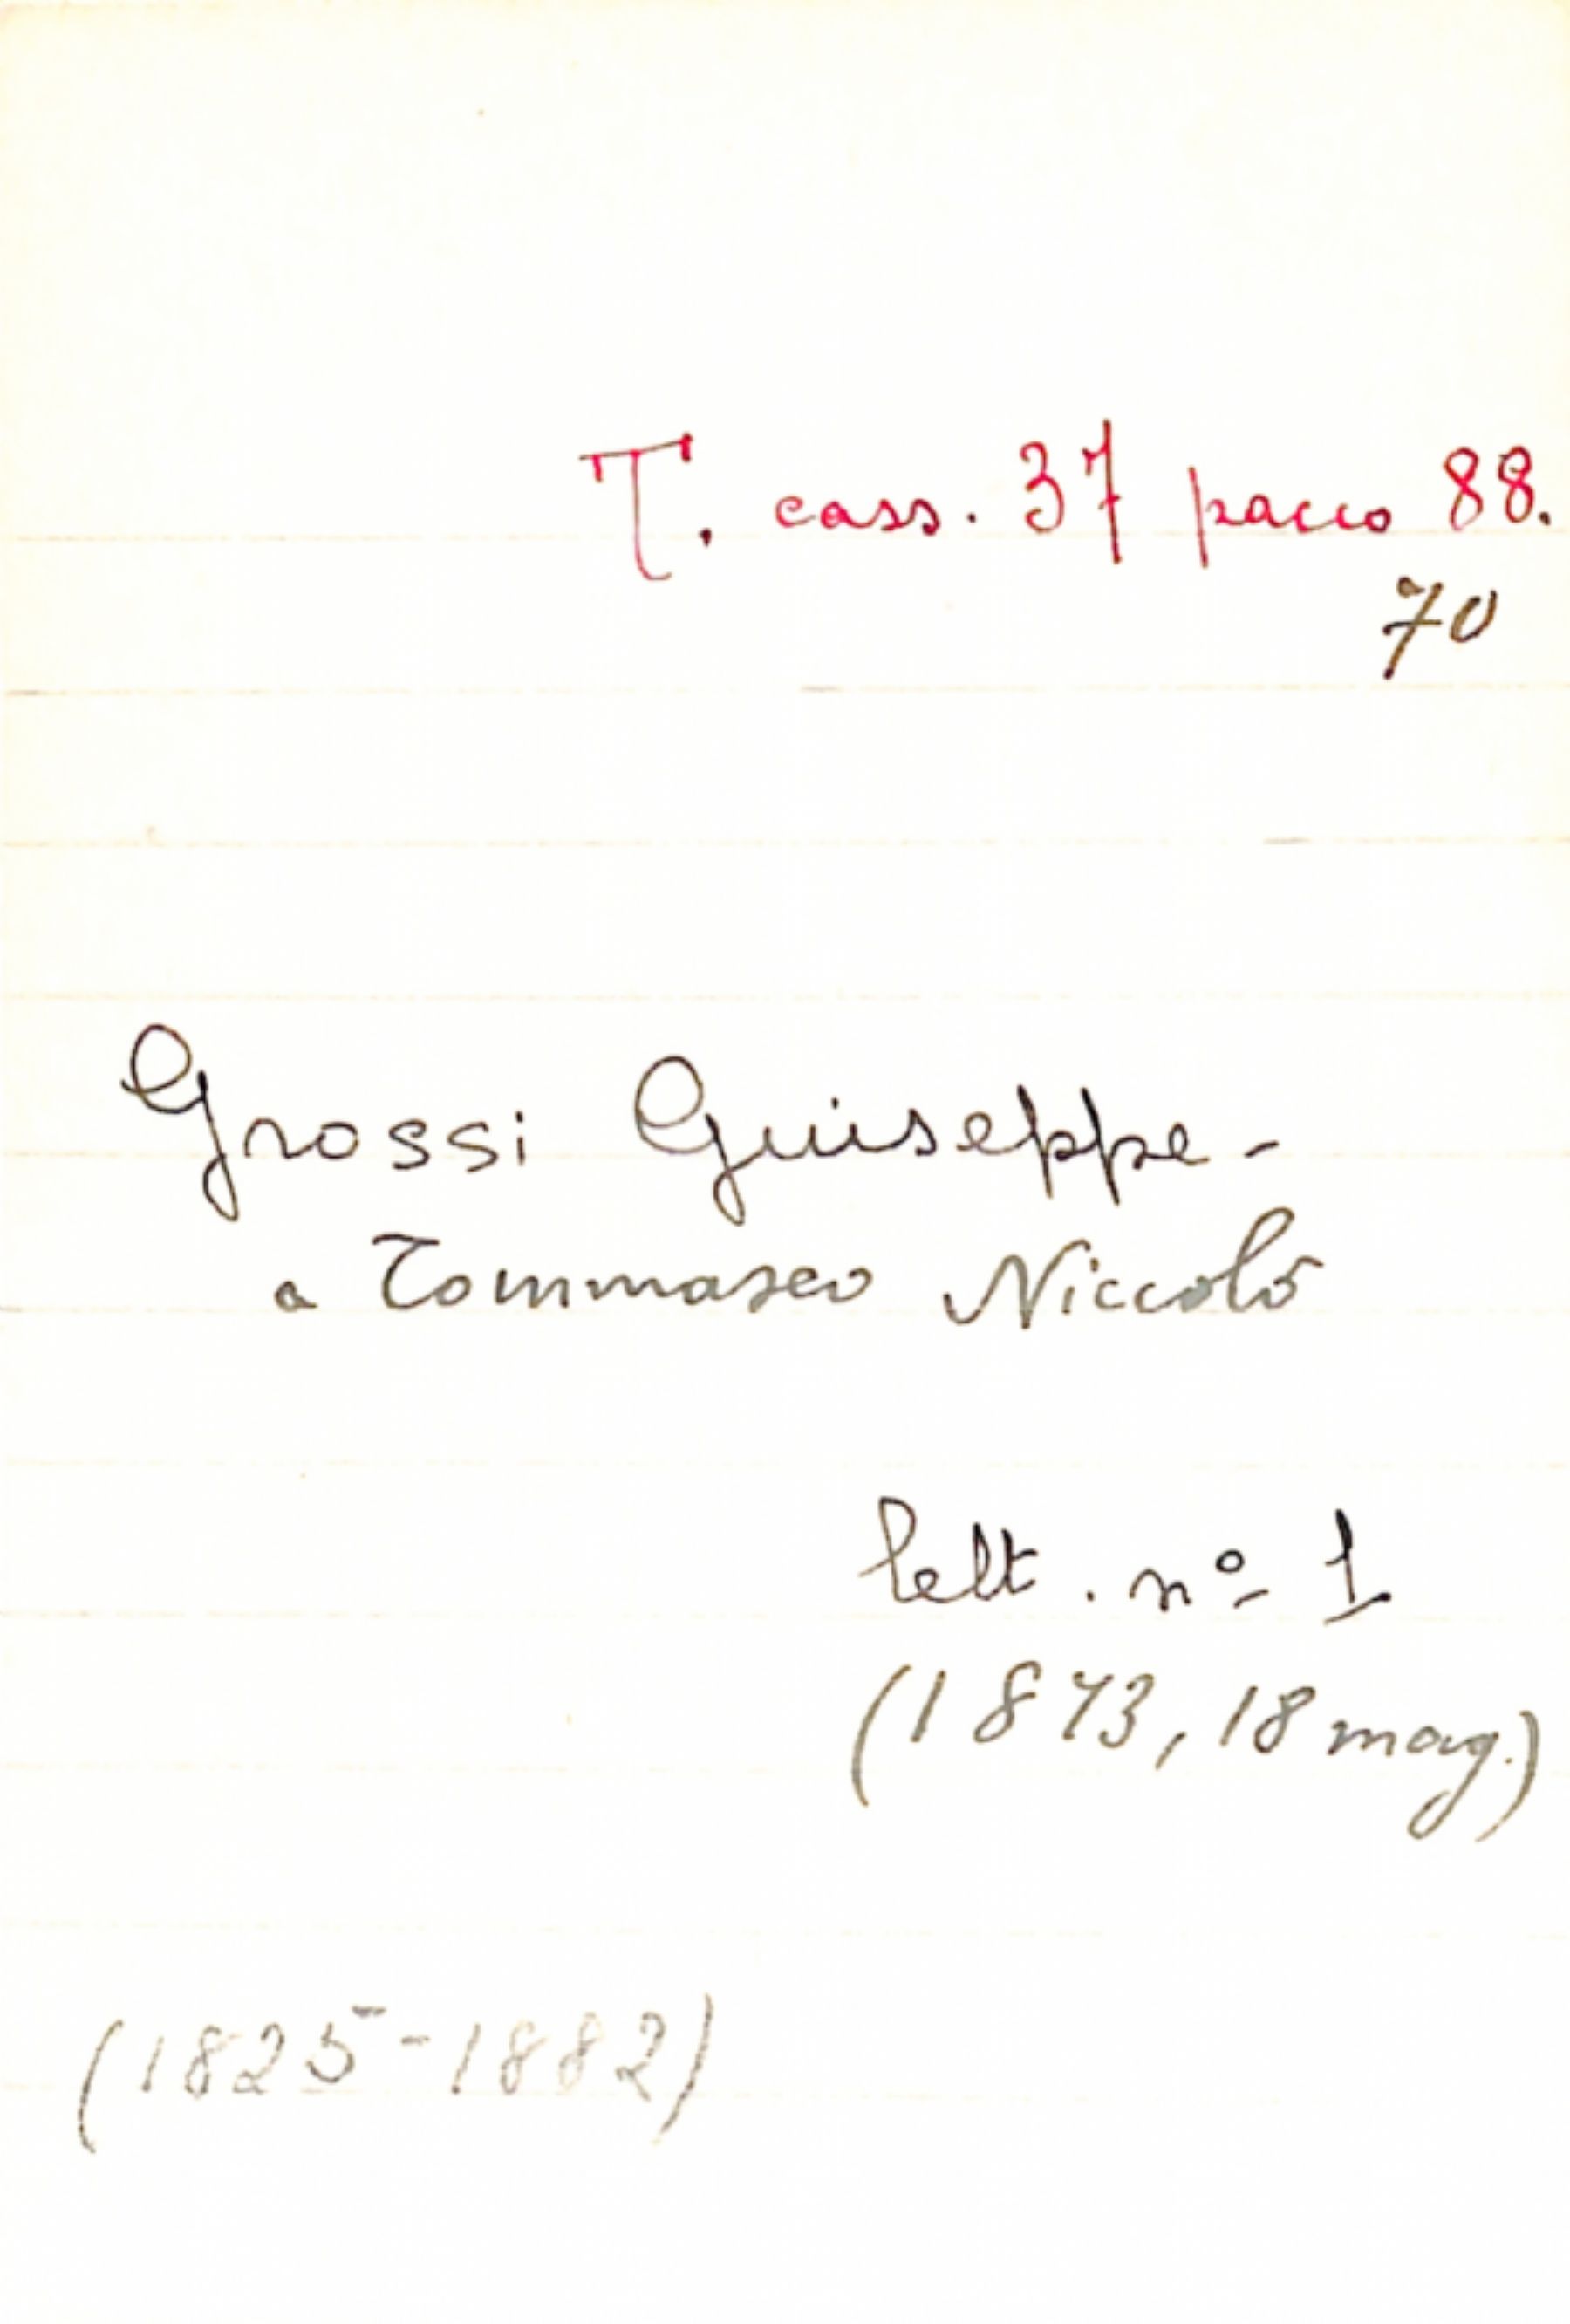 T. cass. 37 pacco 88.
70
Grossi Giuseppe -
a Tommaseo Niccolò
lett. nº 1
(1873, 18 mag.)
(1825-1882)